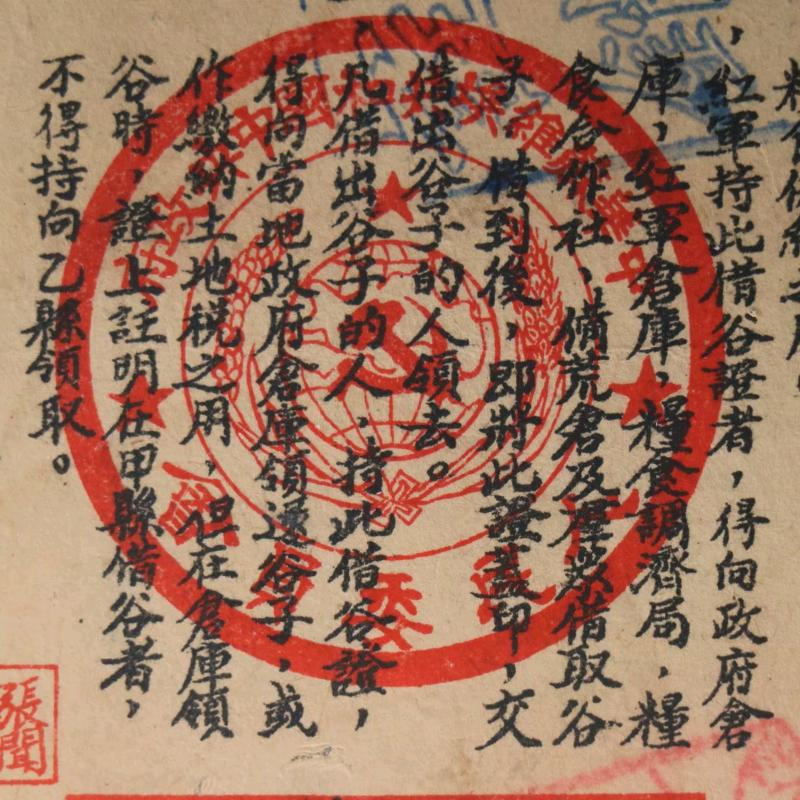 ，紅軍持此借谷證者，得向政府倉
庫，紅軍倉庫，糧食調濟局，糧
食合作社，備荒倉及羣衆借取谷
子，借到後，即將此證蓋印，交
借出谷子的人領去。
凡借出谷子的人，持此借谷證，
得向當地政府倉庫領還谷子，或
作繳納土地稅之用，但在倉庫領
谷時，證上註明在甲縣借谷者，
不得持向乙縣領取。
張聞